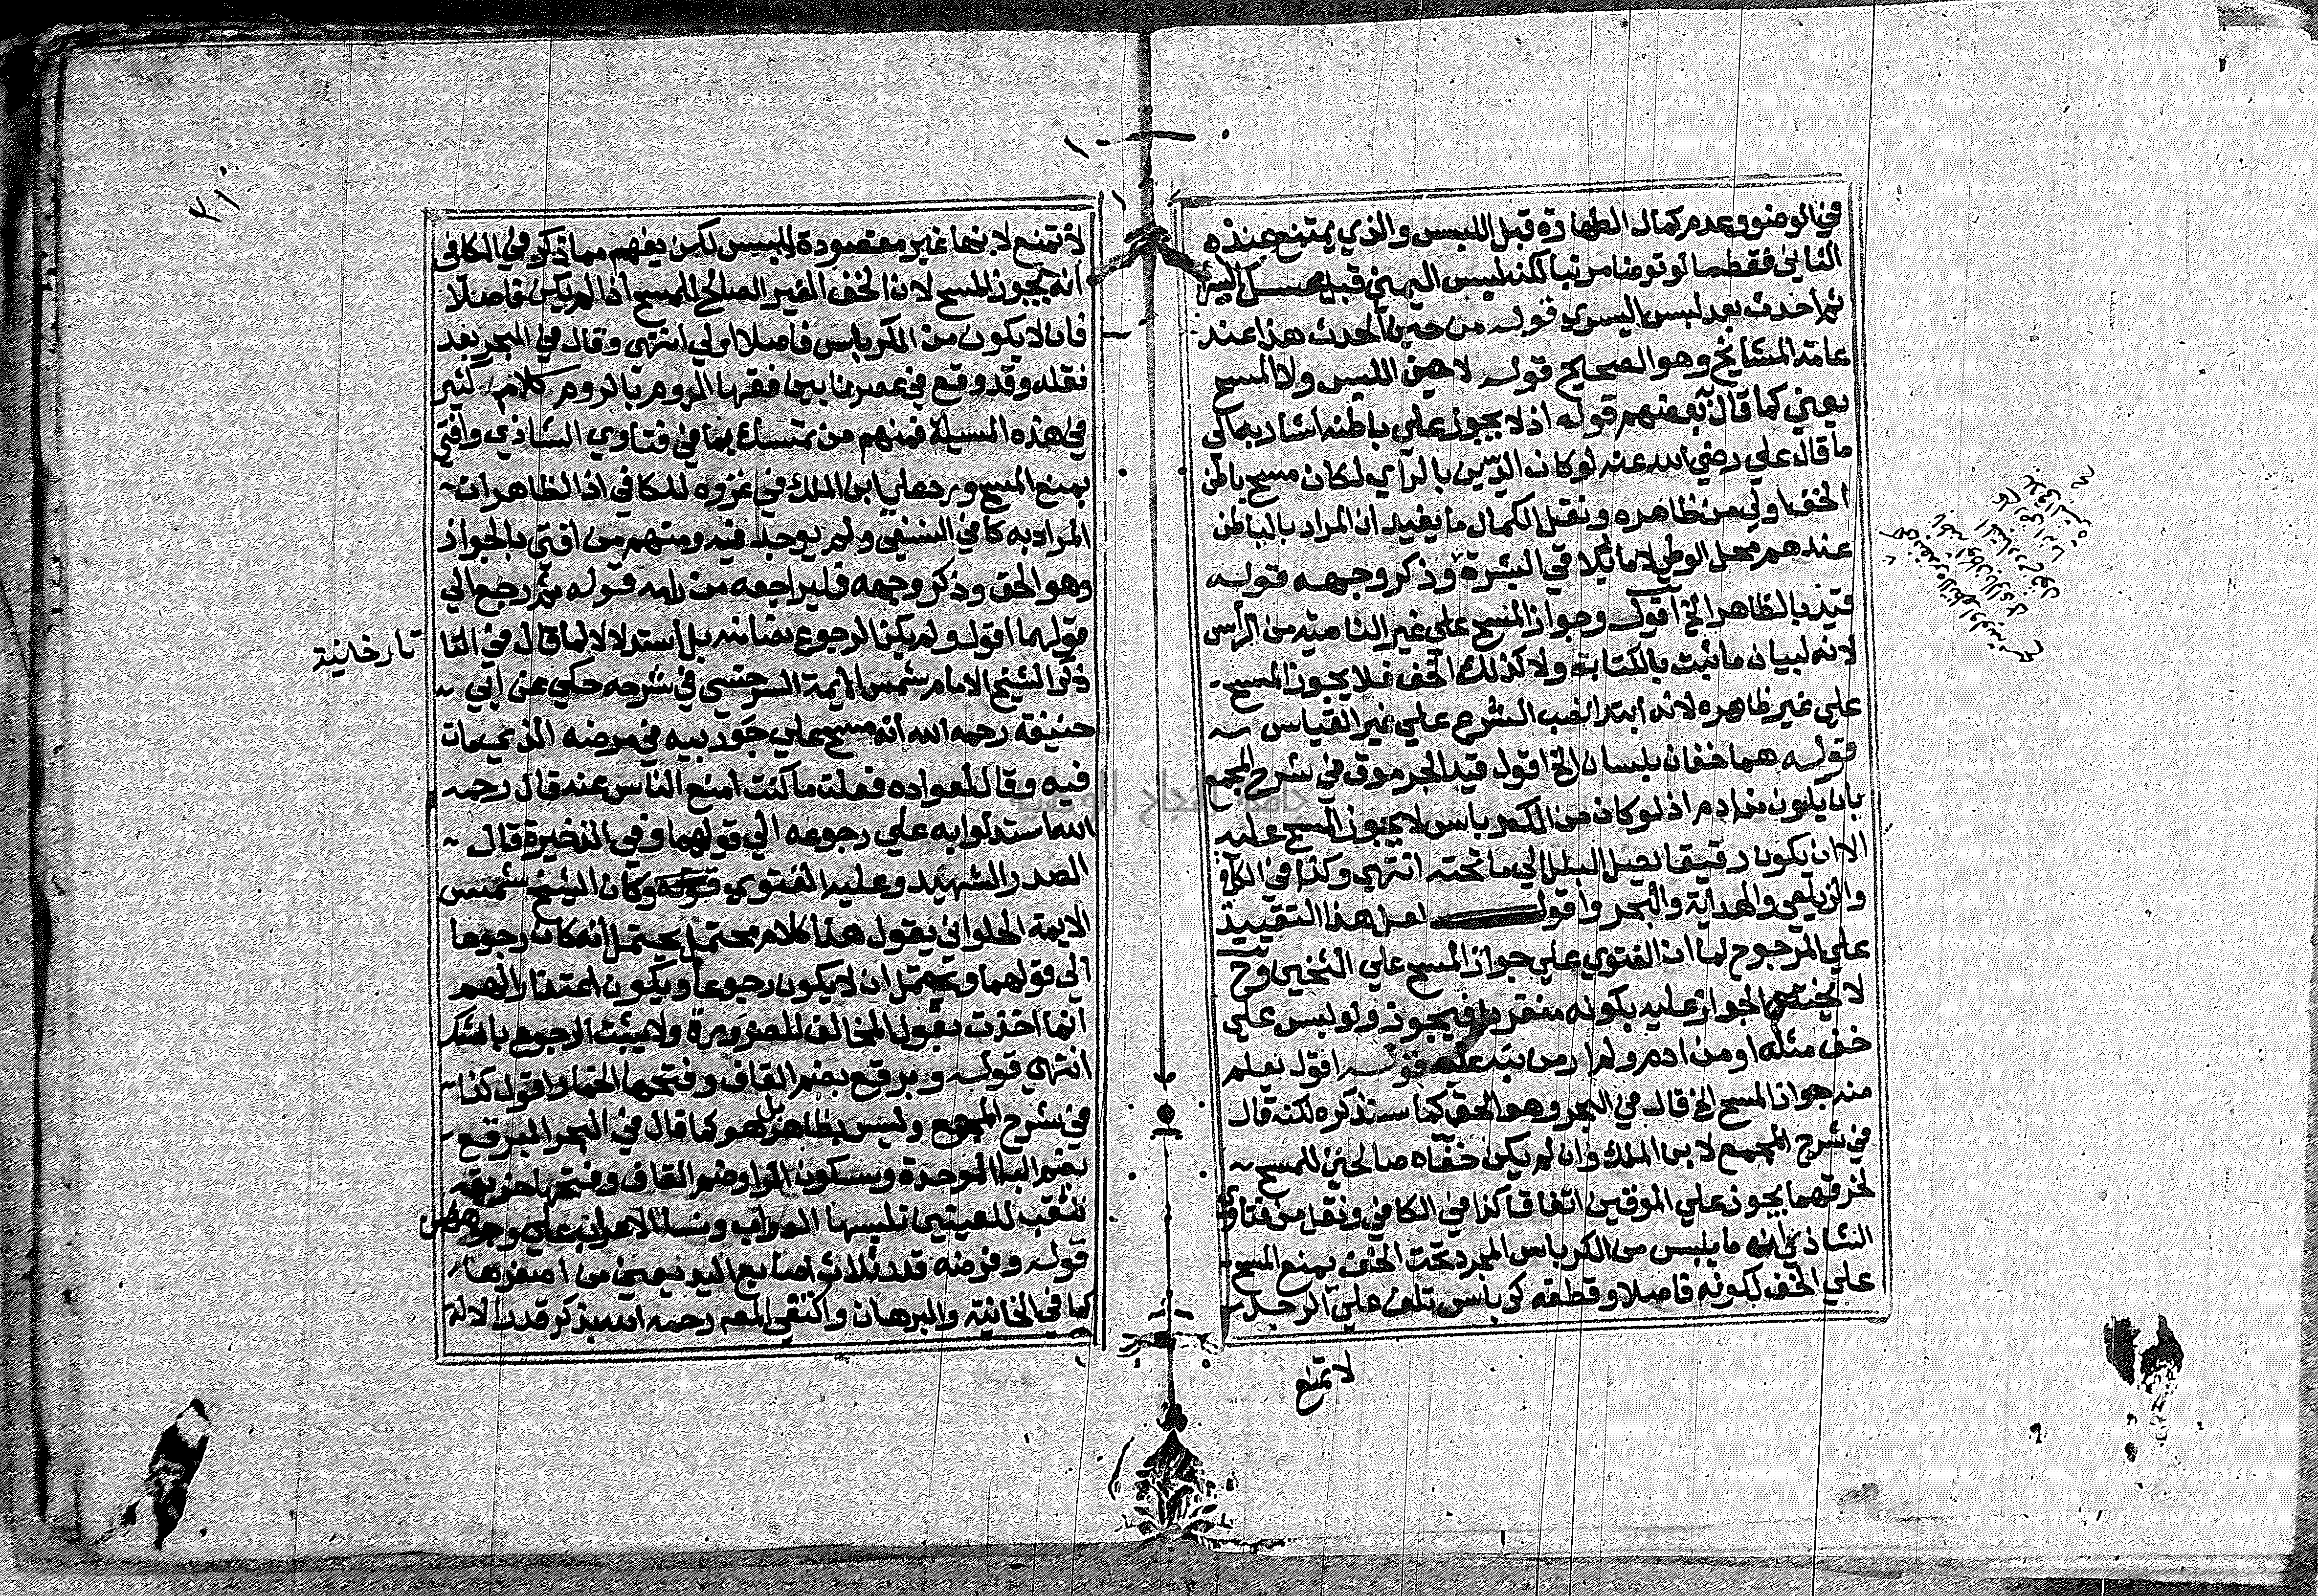 في الوضوء وعدم كمال الطهارة قبل اللبس والذي يمتنع عنده
الثاني فقط ما لو توضا مرتبا لكنه لبس اليمني قبل غسل اليسرى
ثم أحدث بعد لبس اليسري قوله من حين الحدث هذا عند
عامة المشايخ وهو الصحيح قوله لا حين اللبس ولا المسح
يعني كما قال بعضهم قوله اذ لا يجوز علي باطنه أشار به الي
ما قال علي رضي الله عنه لو كان الدين بالرأي لكان مسح باطن
الخف اولي من ظاهره ونقل الكمال ما يفيد ان المراد بالباطن
عندهم محل الوطي لا ما يلاقي البشرة وذكر وجهه قوله
قيد بالظاهر الخ اقول وجواز المسح علي غير الناصية من الرأس
لانه لبيان ما ثبت بالكتابة ولا كذلك الخف فلا يجوز المسح
علي غير ظاهره لانه ابتدا نصب الشرع علي غير القياس
قوله هما خفان يلبسان الخ اقول قيد الجرموق في شرح المجمع
بان يكون من ادم اذ لو كان من الكرباس لا يجوز المسح عليه
الا ان يكون رقيقا يصل البلل الي ما تحته انتهي وكذا في الكافي
والزيلعي والهداية والبحر واقول لعل هذا التقييد
علي المرجوح لما ان الفتوي علي جواز المسح علي الثخين وح
لا يختص الجواز عليه بكونه منفردا فيجوز ولو لبس علي
خف مثله او من ادم ولم ار من نبه عليه قوله اقول يعلم
منه جواز المسح الخ قال في البحر وهو الحق كما سنذكره لكنه قال
في شرح المجمع لابن الملك وان لم يكن خفاه صالحين للمسح
لخرقهما يجوز علي الموقين اتفاقا كذا في الكافي ونقل من فتاوي
الشاذي انه ما يلبس من الكرباس المجرد تحت الخف يمنع المسح
علي الخف لكونه فاصلا وقطعة كرباس تلف علي الرجل
لا تمنع
لا تمنع لانها غير مقصودة للبس لكن يفهم مما ذكر في الكافي
أنه يجوز المسح لان الخف الغير الصالح للمسح اذا لم يكن فاصلا
فان لا يكون من الكرباس فاصلا اولي انتهي وقال في البحر بعد
نقله وقد وقع في عصرنا بين فقها الروم بالروم كلام كثير
في هذه المسيلة فمنهم من تمسك بما في فتاوي الشاذي وافتي
بمنع المسح ورد علي ابن الملك في عزوه للكافي اذ الظاهر ان
المراد به كافي النسفي ولم يوجد فيه ومنهم من افتي بالجواز
وهو الحق وذكر وجهه فليراجعه من رامه قوله ثم رجع الي
قولهما اقول ولم يكن الرجوع نصا منه بل استدلالا لما قال في التا
تارخانية
ذكر الشيخ الامام شمس الايمة السرخسي في شرحه حكي عن أبي
حنيفة رحمه الله انه مسح علي جوربيه في مرضه الذي مات
فيه وقال لعواده فعلت ما كنت امنع الناس عنه قال رحمه
الله استدلوا به علي رجوعه الي قولهما وفي الذخيرة قال
الصدر الشهيد وعليه الفتوي وكان الشيخ شمس
الايمة الحلواني يقول هذا كلام محتمل يحتمل انه كان رجوعا
الي قولهما ويحتمل ان لا يكون رجوعا ويكون اعتذارا لهم
انما اخذت بقول المخالف للضرورة ولا يثبت الرجوع بالشك
انتهي قوله وبرقع بضم القاف وفتحها الخ اقول كذا
في شرح المجمع وليس بظاهر بل هو كما قال في البحر البرقع
بضم البا الموحدة وسكون الرا وضم القاف وفتحها خريقة
تثقب للعينين تلبسها الدواب ونسا الاعراب علي وجوههن
قوله وفرضه قدر ثلاث أصابع اليد يعني من اصغرها
كما في الخانية والبرهان واكتفي المص رحمه الله بذكر قدر الالة